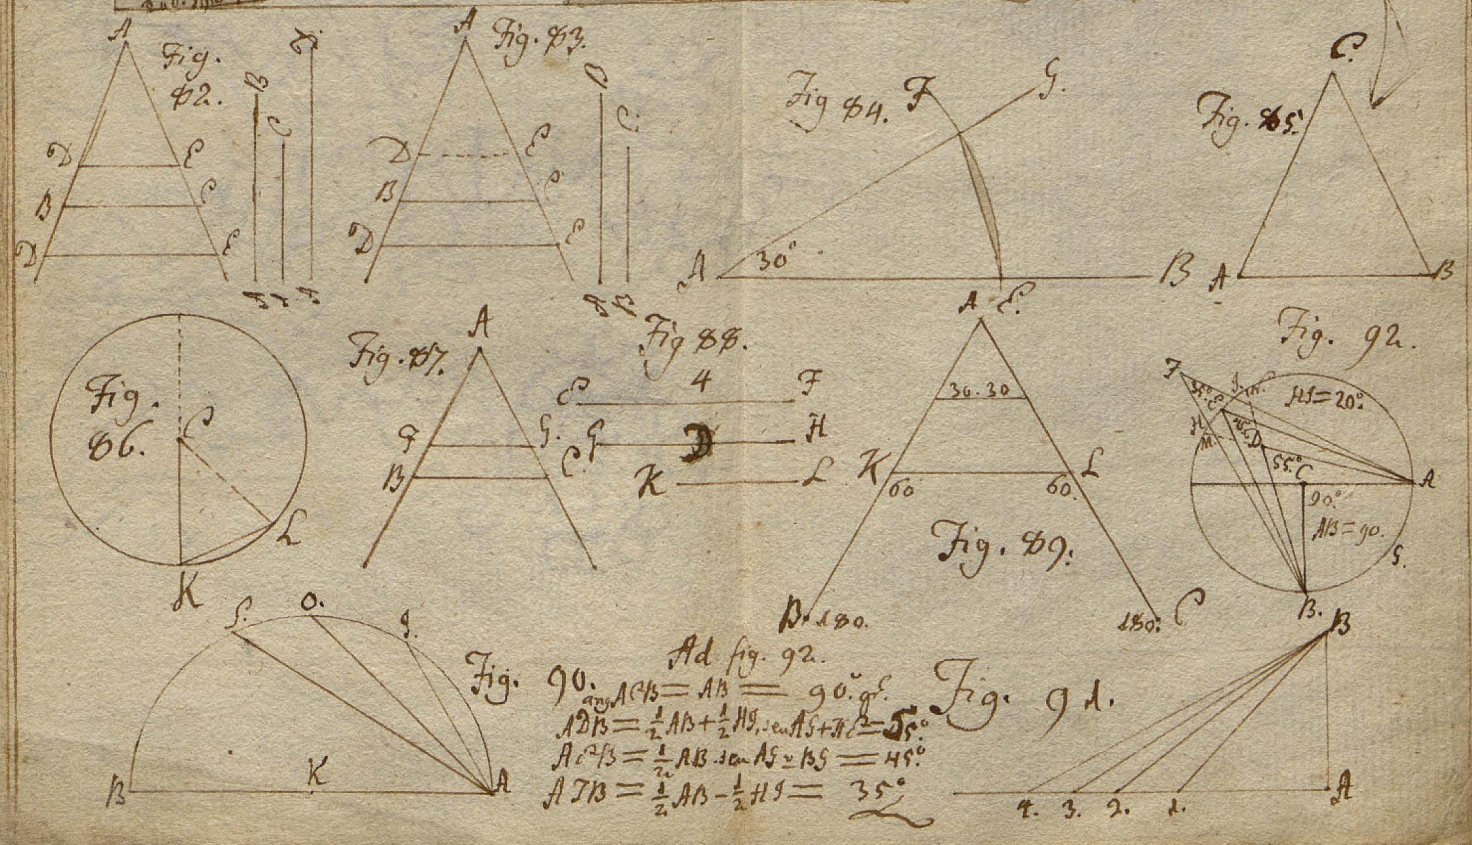 A
Fig. 82.
B
C
D
E
B
C
D
E
A
Fig. 83.
D
C
D
E
B
C
D
E
Fig 84.
F
G.
A
30°
B
E.
Fig. 85.
C.
A
B
Fig. 86.
C
L
K
Fig. 87.
A
F
G.
B
C.
Fig 88.
4
E
F
G
D
H
K
L
A
30.30
K
L
60
60.
Fig. 89.
B. 180.
180. C
Fig. 92.
F
35°
HI=20°.
H
M
D
55°
C
A
90°
AB=90.
G.
B.
O.
B
K
A
Fig. 90.
Ad fig. 92.
ang ACB = AB = 90°.
ADB = ½AB + ½HI, = 55°
= ½AB = 45°
AFB = ½AB - ½HI = 35°
Fig. 91.
B
4. 3. 2. 1.
A